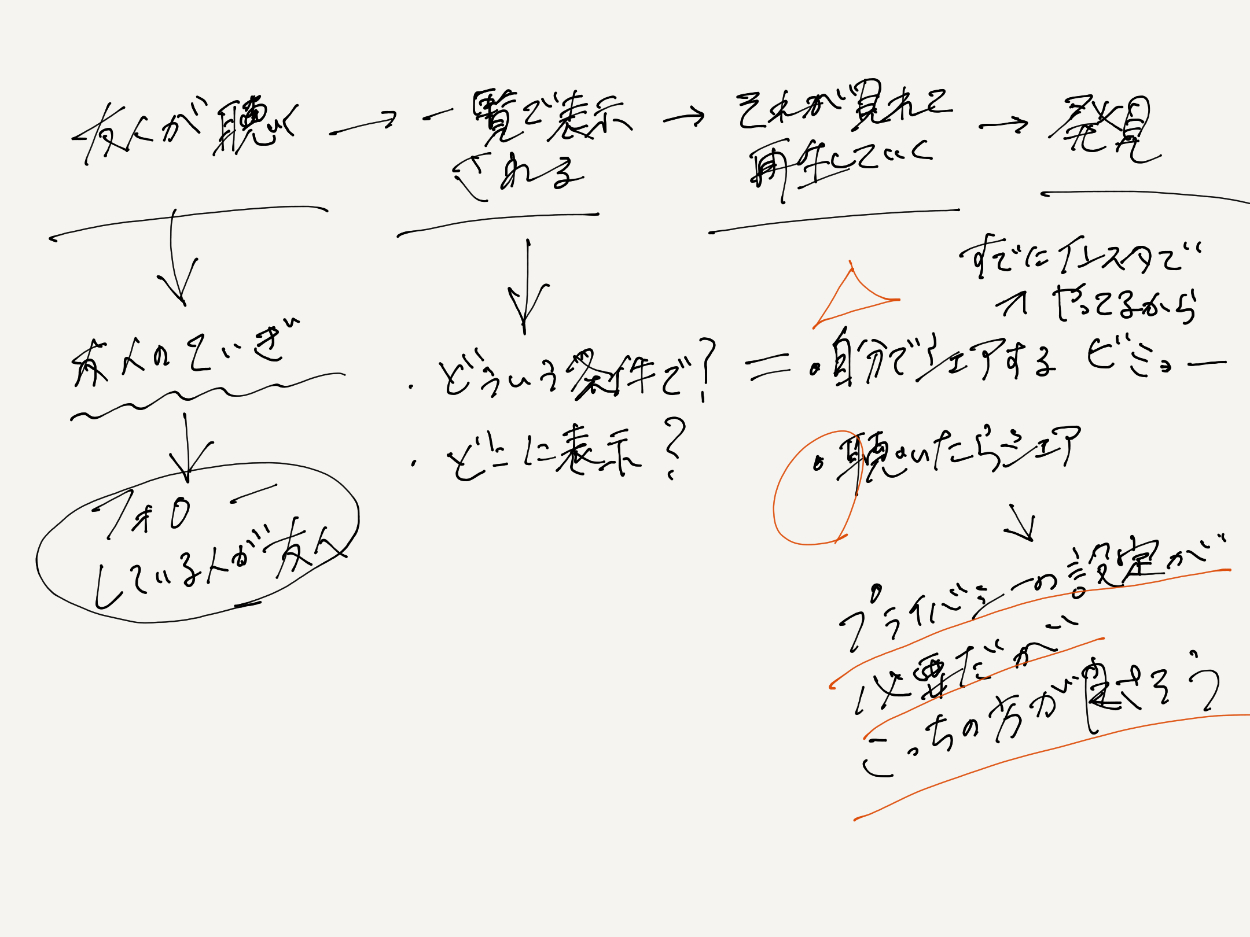 友人が聴く → 一覧で表示 → それが見れて → 発見
される
再生していく
すでにインスタで
↗ やってるから
友人のていぎ
・どういう条件で? = ・自分でシェアする ビミョー
・どこに表示?
・聴いたらシェア
フォロー
している人が友人
プライバシーの設定が
必要だが
こっちの方が良さそう